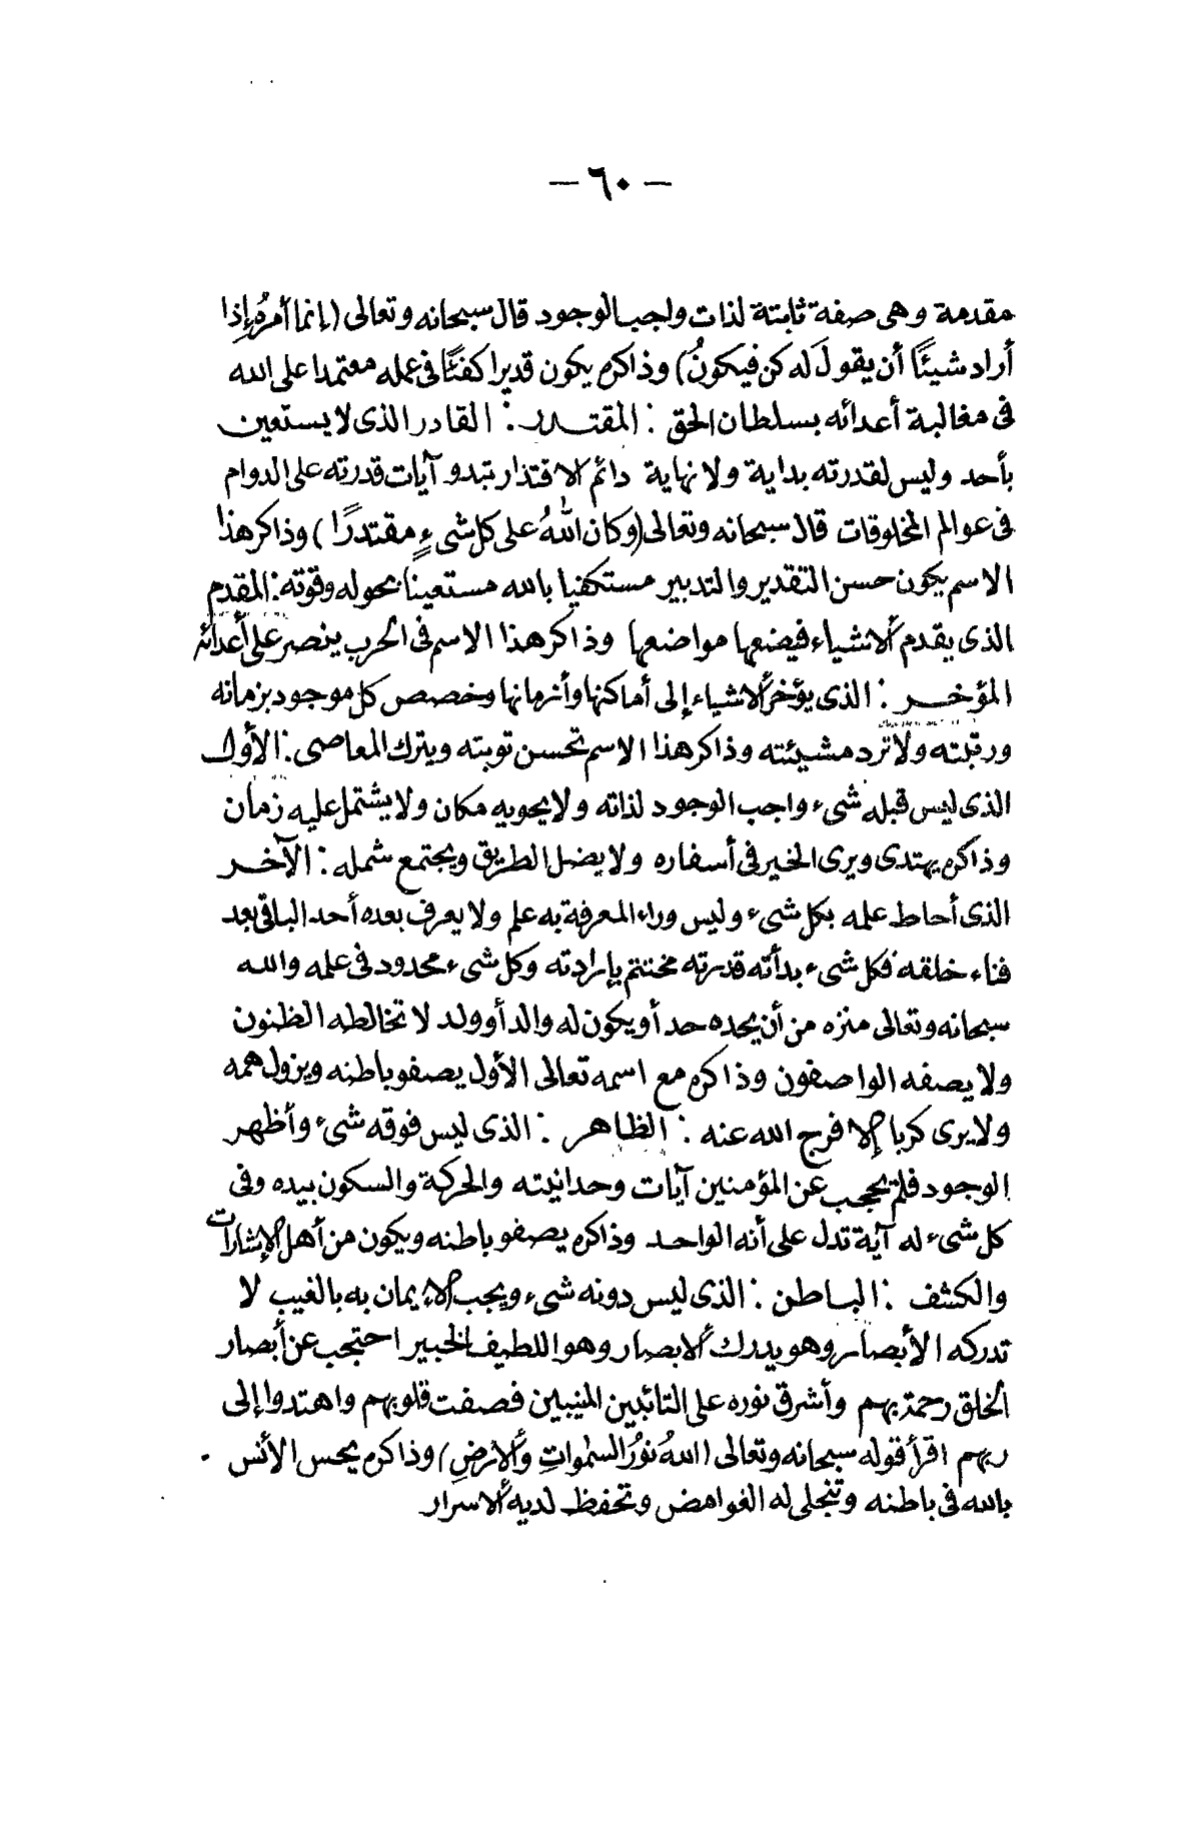 — ٦٠ —
مقدمة وهى صفة ثابتة لذات واجب الوجود قال سبحانه وتعالى (إنما أمرُه إذا
أراد شيئًا أن يقولَ له كن فيكونُ) وذاكره يكون قديرا كفئًا فى عمله معتمدا على الله
فى مغالبة أعدائه بسلطان الحق : المقتدر : القادر الذى لا يستعين
بأحد وليس لقدرته بداية ولا نهاية دائم الاقتدار تبدو آيات قدرته على الدوام
فى عوالم المخلوقات قال سبحانه وتعالى (وكان اللهُ على كل شىءٍ مقتدرًا) وذاكر هذا
الاسم يكون حسن التقدير والتدبير مستكفيا بالله مستعينا بحوله وقوته : المقدم
الذى يقدم الأشياء فيضعها مواضعها وذاكر هذا الاسم فى الحرب ينصر على أعدائه
المؤخر : الذى يؤخر الأشياء إلى أماكنها وأزمانها وخصص كل موجود بزمانه
ورتبته ولا ترد مشيئته وذاكر هذا الاسم تحسن توبته ويترك المعاصى : الأول
الذى ليس قبله شىء واجب الوجود لذاته ولا يحويه مكان ولا يشتمل عليه زمان
وذاكره يهتدى ويرى الخير فى أسفاره ولا يضل الطريق ويجتمع شمله : الآخر
الذى أحاط علمه بكل شىء وليس وراء المعرفة به علم ولا يعرف بعده أحد الباقى بعد
فناء خلقه فكل شىء بدأته قدرته مختتم بإرادته وكل شىء محدود فى علمه والله
سبحانه وتعالى منزه من أن يحده حد أو يكون له والد أو ولد لا تخالطه الظنون
ولا يصفه الواصفون وذاكره مع اسمه تعالى الأول يصفو باطنه ويزول همه
ولا يرى كربا إلا فرج الله عنه : الظاهر : الذى ليس فوقه شىء وأظهر
الوجود فلم يحجب عن المؤمنين آيات وحدانيته والحركة والسكون بيده وفى
كل شىء له آية تدل على أنه الواحد وذاكره يصفو باطنه ويكون من أهل الإشارات
والكشف : الباطن : الذى ليس دونه شىء ويجب الإيمان به بالغيب لا
تدركه الأبصار وهو يدرك الأبصار وهو اللطيف الخبير احتجب عن أبصار
الخلق رحمة بهم وأشرق نوره على التائبين المنيبين فصفت قلوبهم واهتدوا إلى
ربهم اقرأ قوله سبحانه وتعالى (اللهُ نورُ السمٰواتِ والأرضِ) وذاكره يحس الأنس
بالله فى باطنه وتنجلى له الغوامض وتحفظ لديه الأسرار